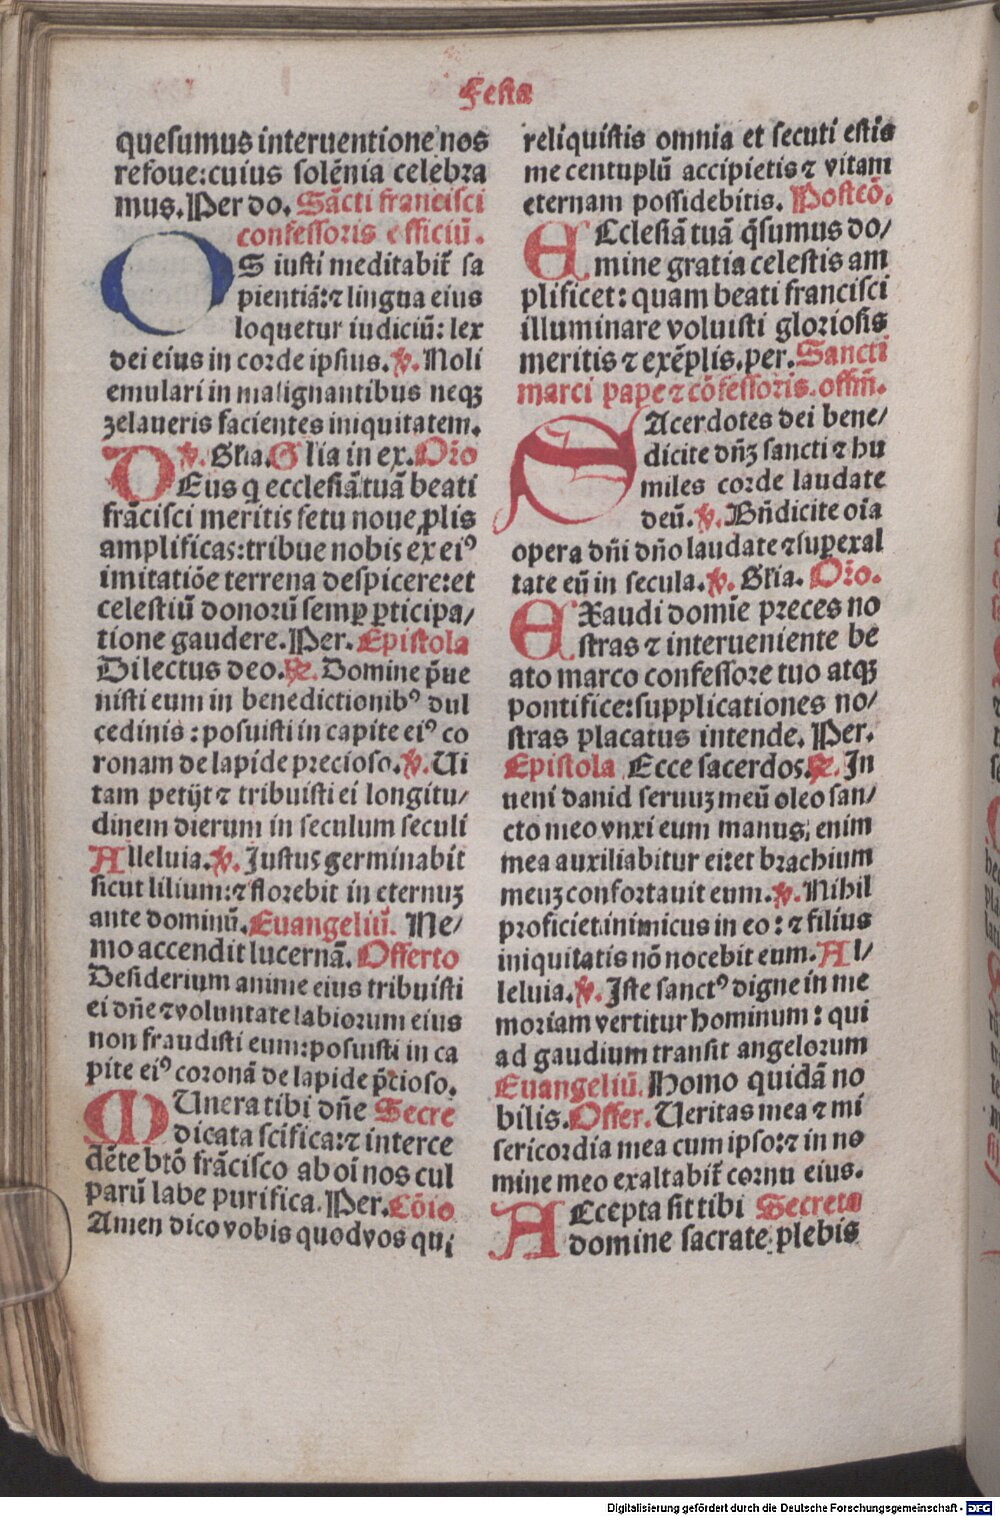 Festa
quesumus interuentione nos
refoue:cuius solēnia celebra
mus. Per do. Sācti francisci
confessoris officiū.
OS iusti meditabit̄ sa
pientiā:⁊ lingua eius
loquetur iudiciū: lex
dei eius in corde ipsius. ℣. Noli
emulari in malignantibus neqꝫ
zelaueris facientes iniquitatem.
℣. Gl̄ia. Glia in ex. Or̄o
DEus q ecclesiā tuā beati
frācisci meritis fetu noue ꝓlis
amplificas:tribue nobis ex eiꝰ
imitatiōe terrena despicere:et
celestiū donorū semꝑ ꝑticipa/
tione gaudere. Per. Epistola
Dilectus deo. ℟. Domine p̄ue
nisti eum in benedictionibꝰ dul
cedinis : posuisti in capite eiꝰ co
ronam de lapide precioso. ℣. Ui
tam petijt ⁊ tribuisti ei longitu/
dinem dierum in seculum seculi
Alleluia. ℣. Justus germinabit
sicut lilium:⁊ florebit in eternuꝫ
ante dominū. Euangeliū. Ne/
mo accendit lucernā. Offerto
Desiderium anime eius tribuisti
ei dn̄e ⁊ voluntate labiorum eius
non fraudisti eum:posuisti in ca
pite eiꝰ coronā de lapide p̄cioso.
MUnera tibi dn̄e Secre
dicata sc̄ifica:⁊ interce
dēte btō frācisco ab oī nos cul
parū labe purifica. Per. Cōio
Amen dico vobis quod vos qui
reliquistis omnia et secuti estis
me centuplū accipietis ⁊ vitam
eternam possidebitis. Postcō.
ECclesiā tuā q̄sumus do/
mine gratia celestis am
plificet : quam beati francisci
illuminare voluisti gloriosis
meritis ⁊ exēplis. per. Sancti
marci pape ⁊ cōfessoris. offm̄.
SAcerdotes dei bene/
dicite dn̄ꝫ sancti ⁊ hu
miles corde laudate
deū. ℣. Bn̄dicite oīa
opera dn̄i dn̄o laudate ⁊ superexal
tate eū in secula. ℣. Gl̄ia. Or̄o.
EXaudi domīe preces no
stras ⁊ interueniente be
ato marco confessore tuo atqꝫ
pontifice:supplicationes no/
stras placatus intende. Per.
Epistola Ecce sacerdos. ℟. In
ueni dauid seruuꝫ meū oleo san/
cto meo vnxi eum manus, enim
mea auxiliabitur ei:et brachium
meuꝫ confortauit eum. ℣. Nihil
proficiet inimicus in eo : ⁊ filius
iniquitatis nō nocebit eum. Al/
leluia. ℣. Iste sanctꝰ digne in me
moriam vertitur hominum : qui
ad gaudium transit angelorum
Euangeliū. Homo quidā no
bilis. Offer. Ueritas mea ⁊ mi
sericordia mea cum ipso:⁊ in no
mine meo exaltabit̄ cornu eius.
ACcepta sit tibi Secreta
domine sacrate plebis
Digitalisierung gefördert durch die Deutsche Forschungsgemeinschaft - DFG